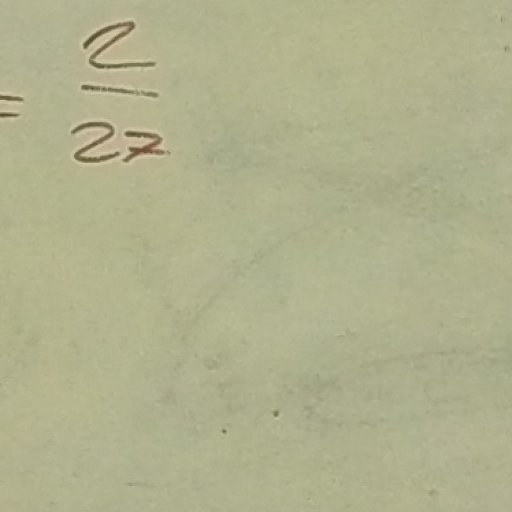 = 2/27